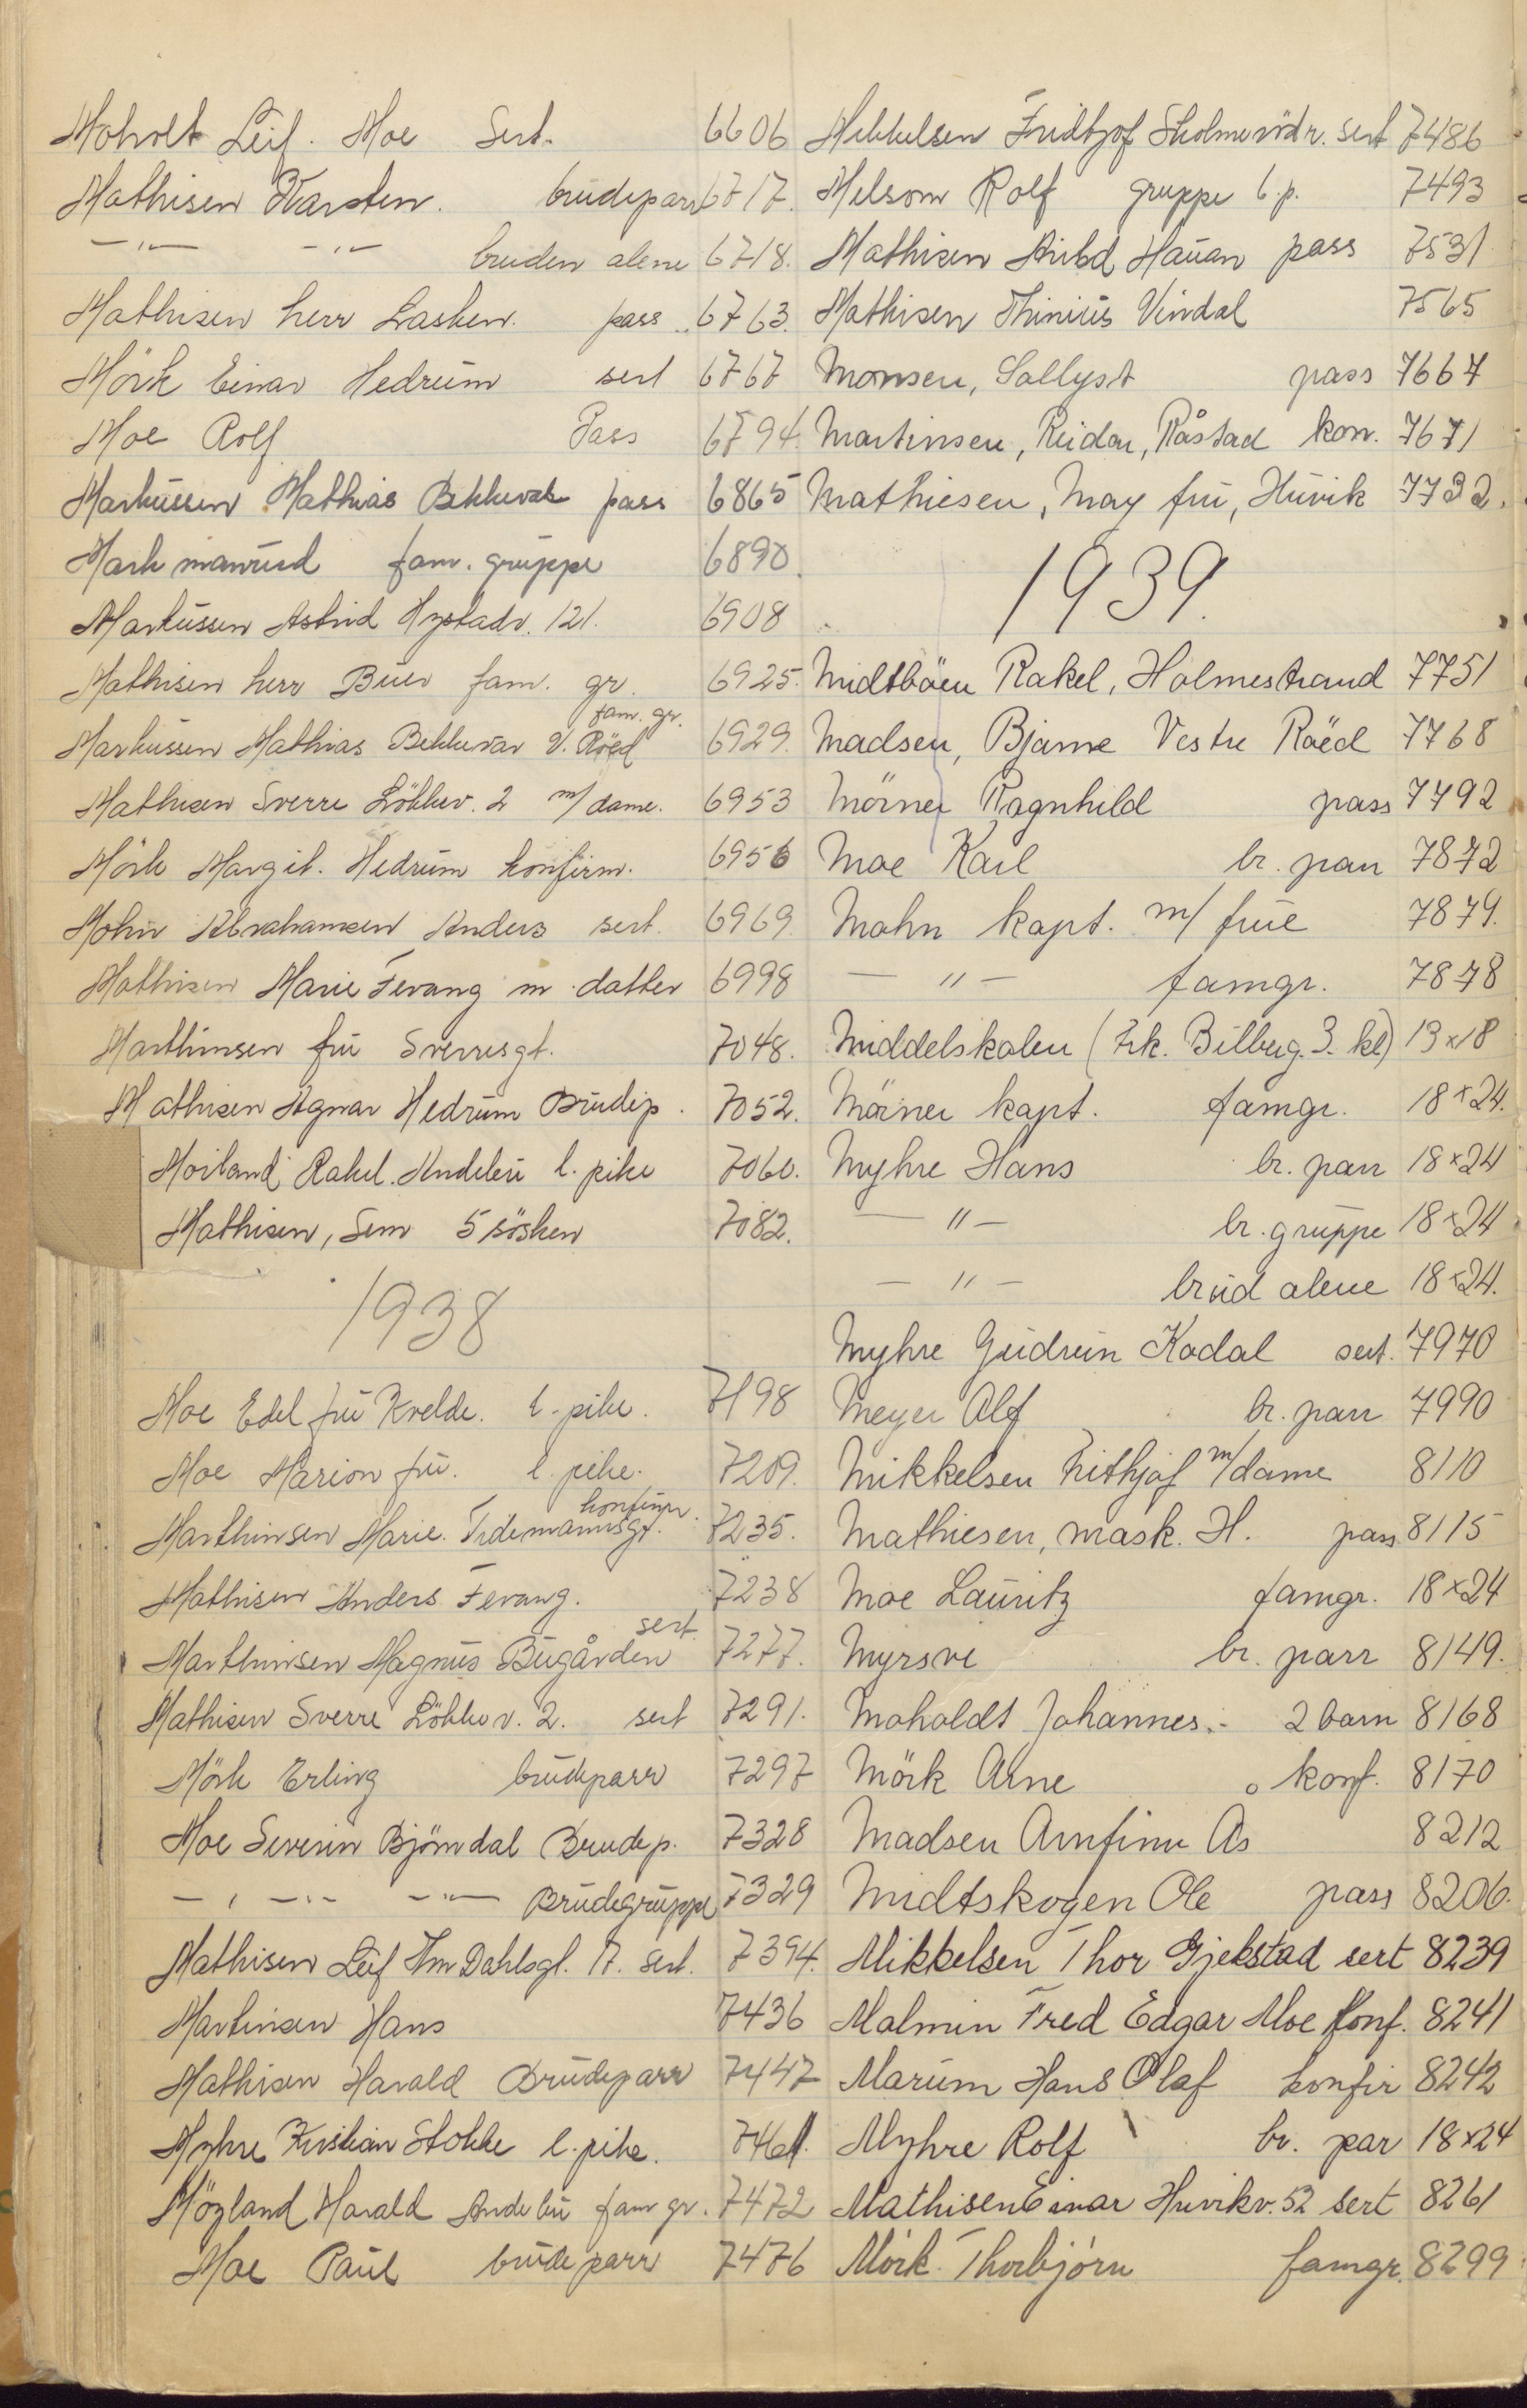 Moholt Leif. Moe Sert. 6606
Mathisen Karsten. brudeparr 6717.
— " — — " — bruden alene 6718.
Mathisen herr Lasken. pass 6763.
Mörk Einar Hedrum sert 6767
Moe Rolf Pass 6794.
Markussen Mathias Bekkevar pass 6865
Mark manrud fam. gruppe 6890.
Markussen Astrid Hystadv. 121. 6908
Mathisen herr Buer fam. gr. 6925.
Markussen Mathias Bekkevar V. Röed fam. gr. 6929.
Mathisen Sverre Lökkev. 2 m/dame. 6953
Mörk Margit. Hedrum konfirm. 6956
Mohn Abrahamsen Anders sert. 6969.
Mathisen Marie Fevang m. datter 6998
Marthinsen fru Sverresgt. 7048.
Mathisen Agnar Hedrum Brudep. 7052.
Moiland Rakel. Andebu l. pike 7060.
Mathisen, Sem 5 sösken 7082.
1938
Moe Edel fru Kvelde. l. pike. 7198
Moe Marion fru. l. pike. 7209.
Marthinsen Marie. Tidemannsgt. konfirm. 7235.
Mathisen Anders Fevang. 7238
Marthinsen Magnus Bugården sert. 7277.
Mathisen Sverre Lökkev. 2. sert 7291.
Mörk Erling brudeparr 7297
Moe Severin Björndal Brudep. 7328
— " — — " — Brudegruppe 7329
Mathisen Leif Thv Dahlsgt. 17. sert. 7394.
Martinsen Hans 7436
Mathisen Harald Brudeparr 7447
Myhre Kristian Stokke l. pike. 7461.
Möyland Harald Andebu fam gr. 7472
Moe Paul brudeparr 7476
Mekkelsen Fridtjof sert 7486
Melsom Rolf gruppe b.p. 7493
Mathisen Hauan pass 7531
Mathisen Thinius Vindal 7565
Monsen, Sollyst pass 7667
Martinsen, Reidar, Råstad kon. 7671
Mathiesen, May fru, Huvik 7732.
1939.
Midtböen Rakel, Holmestrand 7751
Madsen, Bjarne Vestre Röed 7768
Mörner Ragnhild pass 7792
Moe Karl br. parr 7872
Mohn kapt. m/ frue 7879.
— " — famgr. 7878
Middelskolen (Frk. Bilberg. 3. kl) 13x18
Mörner kapt. famgr. 18x24.
Myhre Hans br. parr 18x24
— " — br. gruppe 18x24
— " — brud alene 18x24.
Myhre Gudrun Kodal sert. 7970
Meyer Alf br. parr 7990
Mikkelsen Frithjof m/dame 8110
Mathiesen, mask. H. pass 8115
Moe Lauritz famgr. 18x24
Myrsve br. parr 8149.
Moholdt Johannes. - 2 barn 8168
Mörk Arne konf. 8170
Madsen Arnfinn As 8212
Midtskogen Ole pass 8206.
Mikkelsen Thor Gjekstad sert 8239
Malmin Fred Edgar Moe konf. 8241
Marum Hans Olaf konfir 8242
Myhre Rolf br. par 18x24
Mathisen Einar Huvikv. 52 sert 8261
Mörk Thorbjörn famgr. 8299